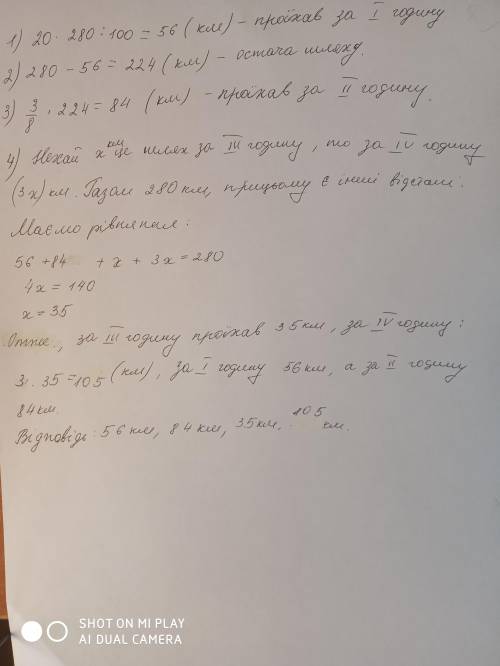 1) 20 · 280 : 100 = 56 (км) – проїхав за I годину
2) 280 – 56 = 224 (км) – остача шляху.
3) 3/8 · 224 = 84 (км) – проїхав за II годину.
4) Нехай x км це шлях за III годину, то за IV годину
(3x) км. Разом 280 км, прицьому є інші відстані.
Маємо рівняння:
56 + 84 + x + 3x = 280
4x = 140
x = 35
Отже, за III годину проїхав 35 км, за IV годину:
3 · 35 = 105 (км), за I годину 56 км, а за II годину
84 км.
Відповідь: 56 км, 84 км, 35 км, 105 км.
SHOT ON MI PLAY
AI DUAL CAMERA